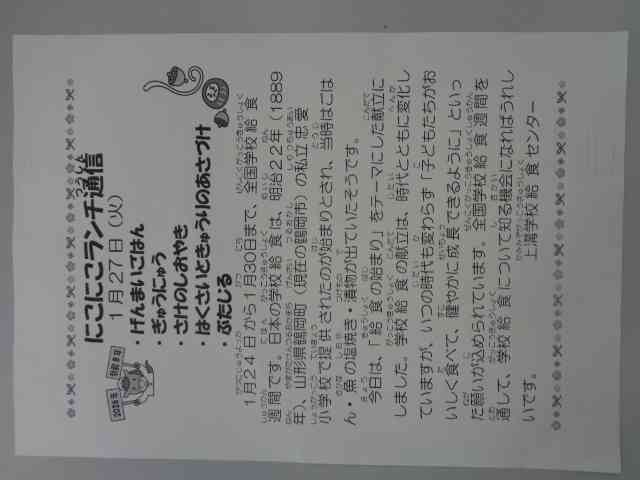 にこにこランチ通信
1月27日（火）
・げんまいごはん
・ぎゅうにゅう
・さけのしおやき
・はくさいときゅうりのあさづけ
・ぶたじる
2026年
1月24日から1月30日まで、全国学校給食
週間です。日本の学校給食は、明治22年（1889
年）、山形県鶴岡町（現在の鶴岡市）の私立忠愛
小学校で提供されたのが始まりとされ、当時はごは
ん・魚の塩焼き・漬物が出ていたそうです。
今日は、「給食の始まり」をテーマにした献立に
しました。学校給食の献立は、時代とともに変化し
ていますが、いつの時代も変わらず「子どもたちがお
いしく食べて、健やかに成長できるように」といっ
た願いが込められています。全国学校給食週間を
通して、学校給食について知る機会になればうれし
いです。
上溝学校給食センター